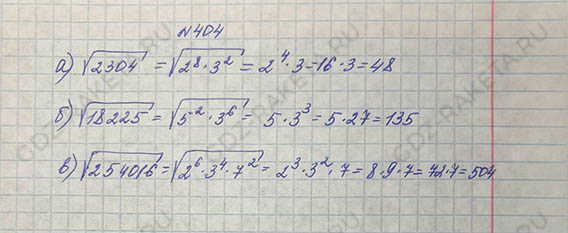 №404
а) √2304 = √2⁸·3² = 2⁴·3=16·3=48
б) √18225 = √5⁻²·3⁶ = 5·3³=5·27=135
в) √254016=√2⁶·3⁴·7² = 2³·3²·7=8·9·7=72·7=504
GDZ-RAKETA.RU